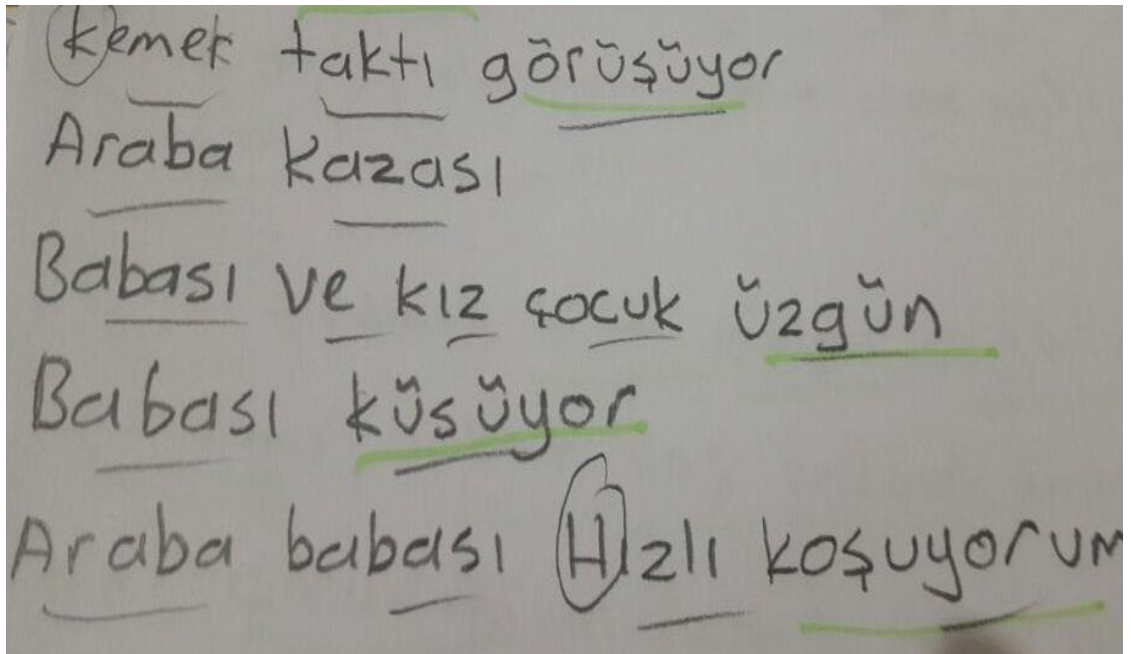 kemek taktı görüşüyor
Araba kazası
Babası ve kız çocuk üzgün
Babası küsüyor
Araba babası Hızlı koşuyorum